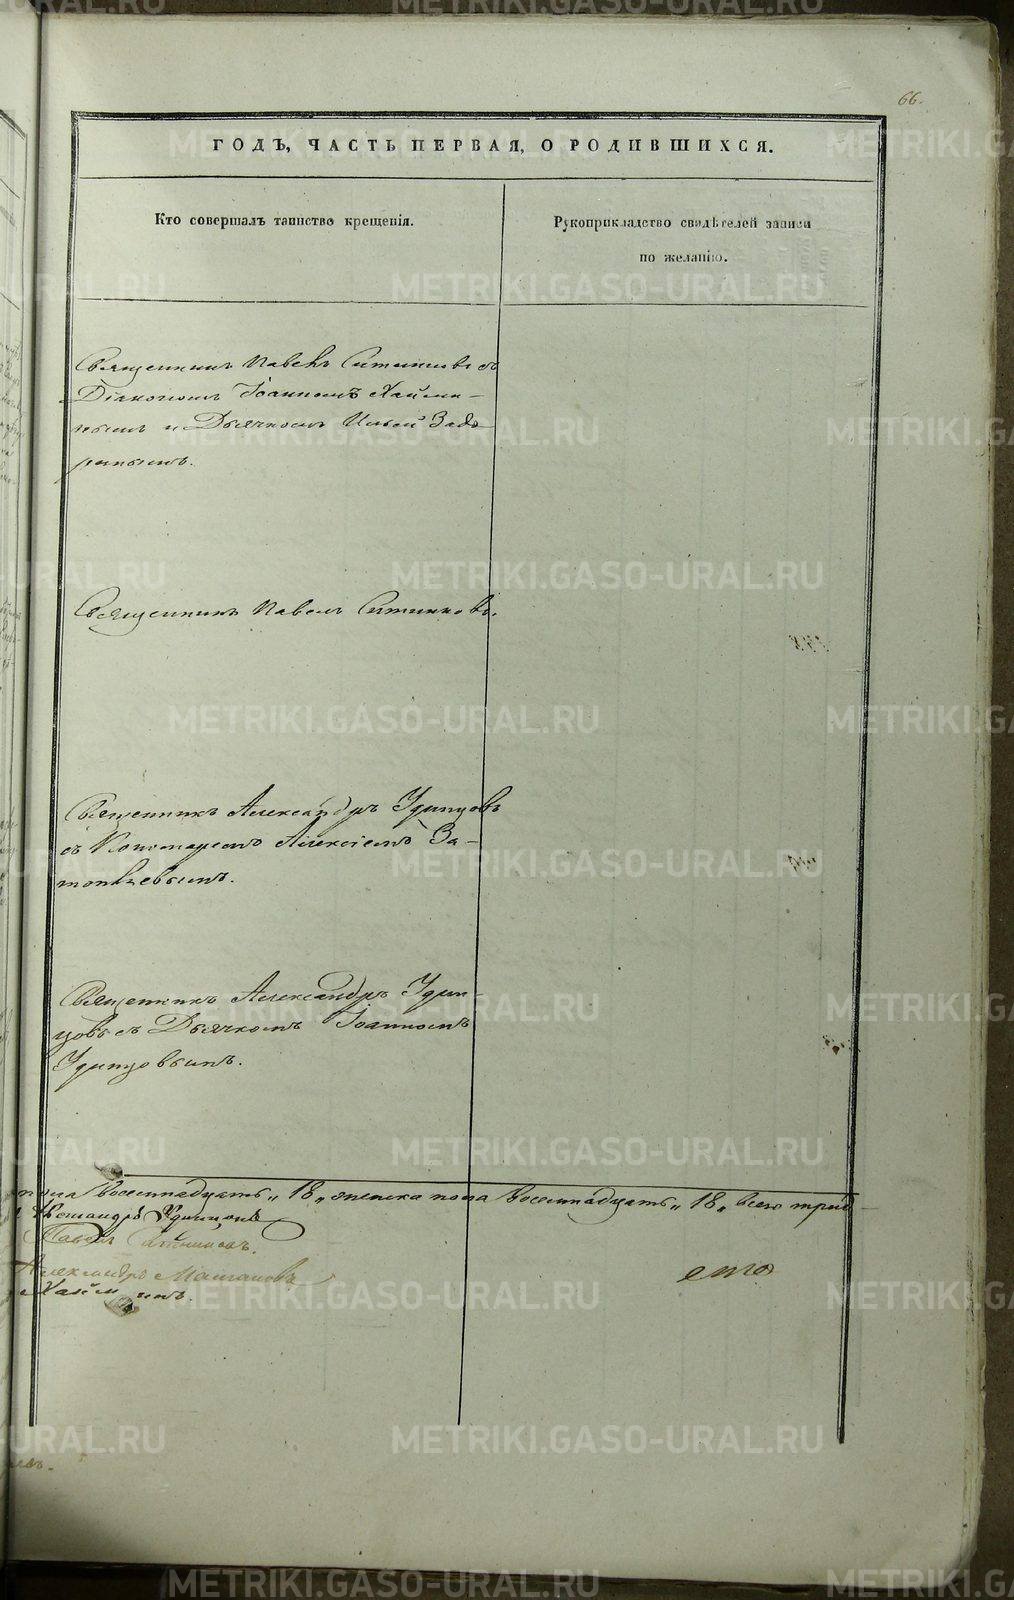 66.
ГОДЪ, ЧАСТЬ ПЕРВАЯ, О РОДИВШИХСЯ.
Кто совершалъ таинство крещенія.
Рукоприкладство свидѣтелей записи
по желанію.
Священникъ Павелъ Ситниковъ съ
Діакономъ Іоанномъ Хайми-
нымъ и Дьячкомъ Ильей Задо-
ринымъ.
Священникъ Павелъ Ситниковъ.
Священникъ Александръ Удинцовъ
съ Пономаремъ Алексіемъ За-
топляевымъ.
Священникъ Александръ Удин-
цовъ съ Дьячкомъ Іоанномъ
Удинцовымъ.
пола восемнадцать „18„ женска пола восемнадцать „18„ всего трид-
Александръ Удинцовъ
Павелъ Ситниковъ.
Александръ
METRIKI.GASO-URAL.RU